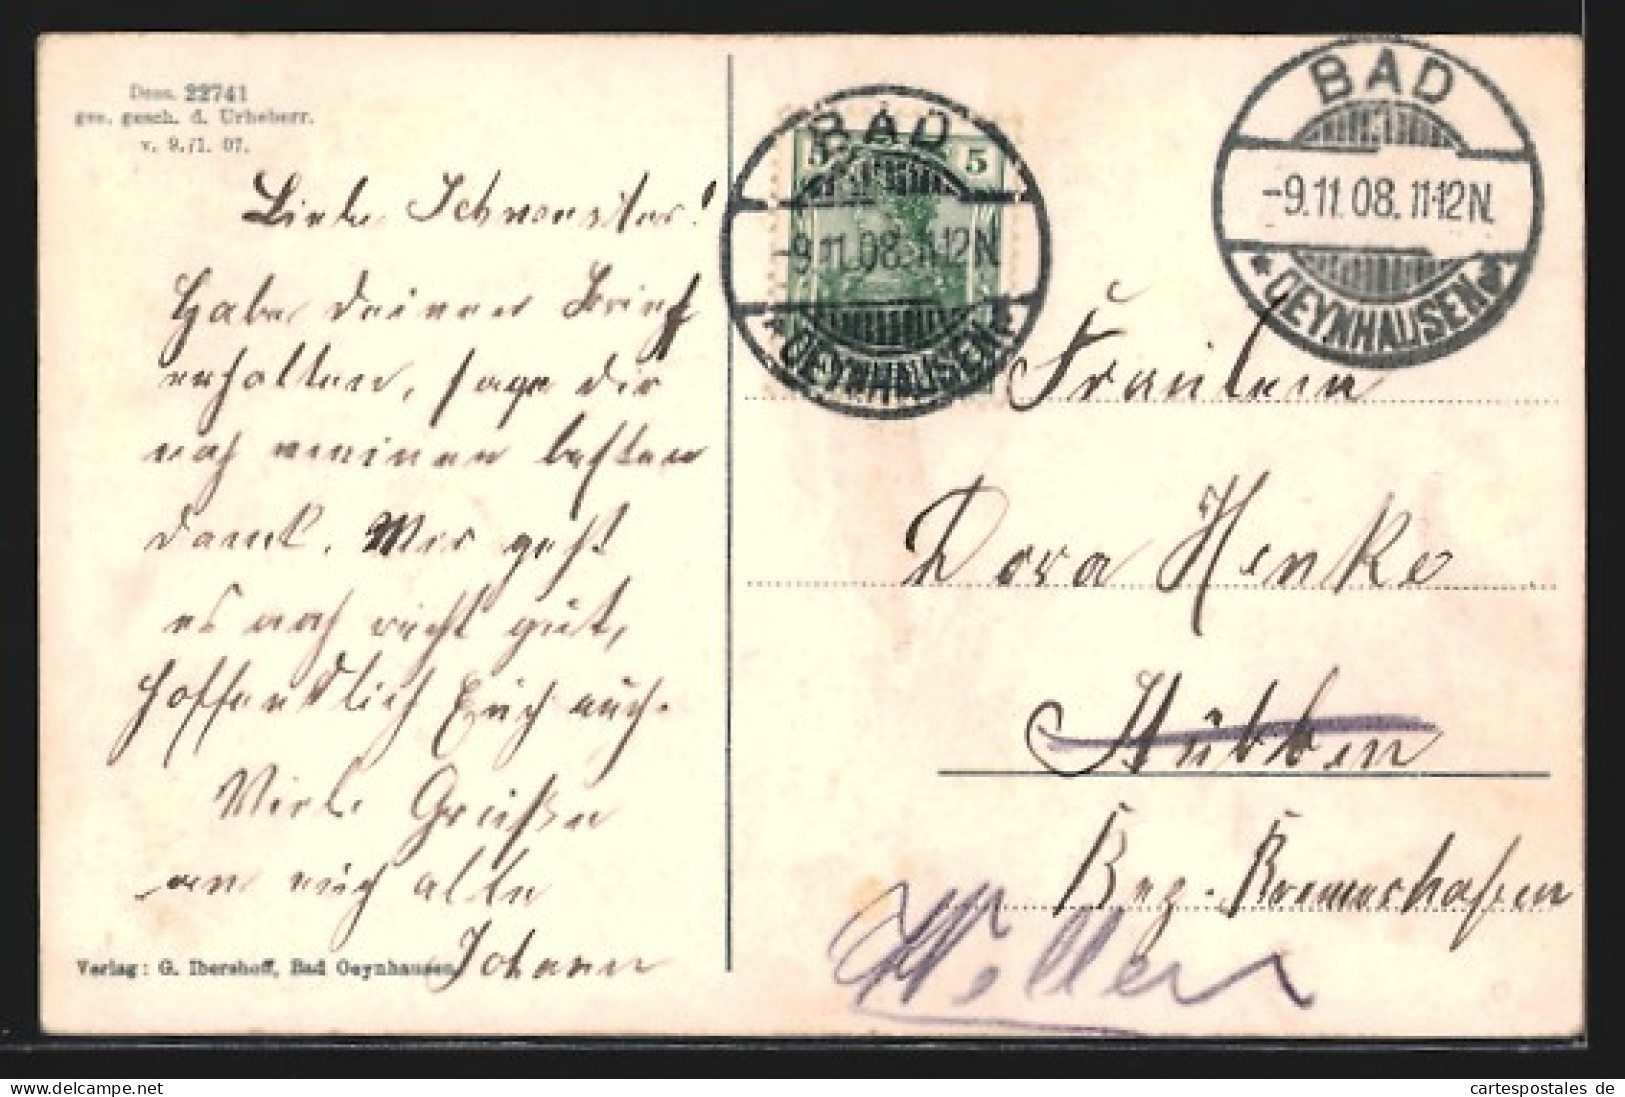 Dess. 22741
ges. gesch. d. Urheberr.
v. 9./1. 07.
Liebe Schwester!
Habe deinen Brief
erhalten, sage dir
noch meinen besten
Dank. Mir geht
es noch recht gut,
hoffentlich Euch auch.
Viele Grüße
an euch alle
Johann
Verlag: G. Ibershoff, Bad Oeynhausen
5 5
BAD
-9.11.08.11-12N
* OEYNHAUSEN *
BAD
-9.11.08.11-12N.
* OEYNHAUSEN
Fräulein
Dora Henke
Stubben
Bez. Bremerhafen
Wellen
www.cartespostales.de
cartespostales de